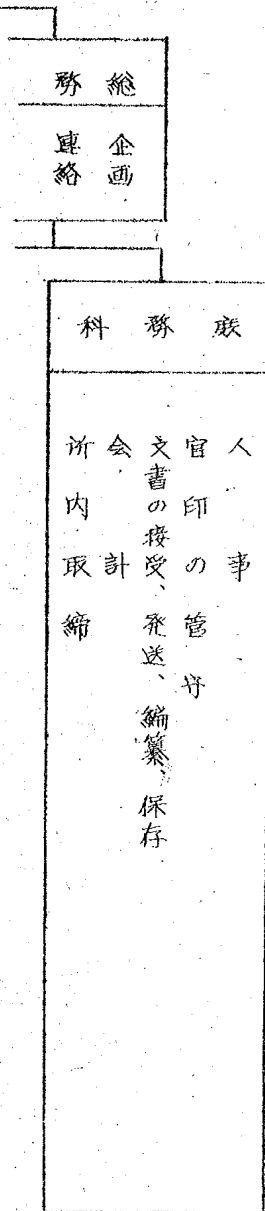 総務
企画
連絡
庶務科
人事
官印の管守
文書の接受、発送、編纂、保存
会計
所内取締